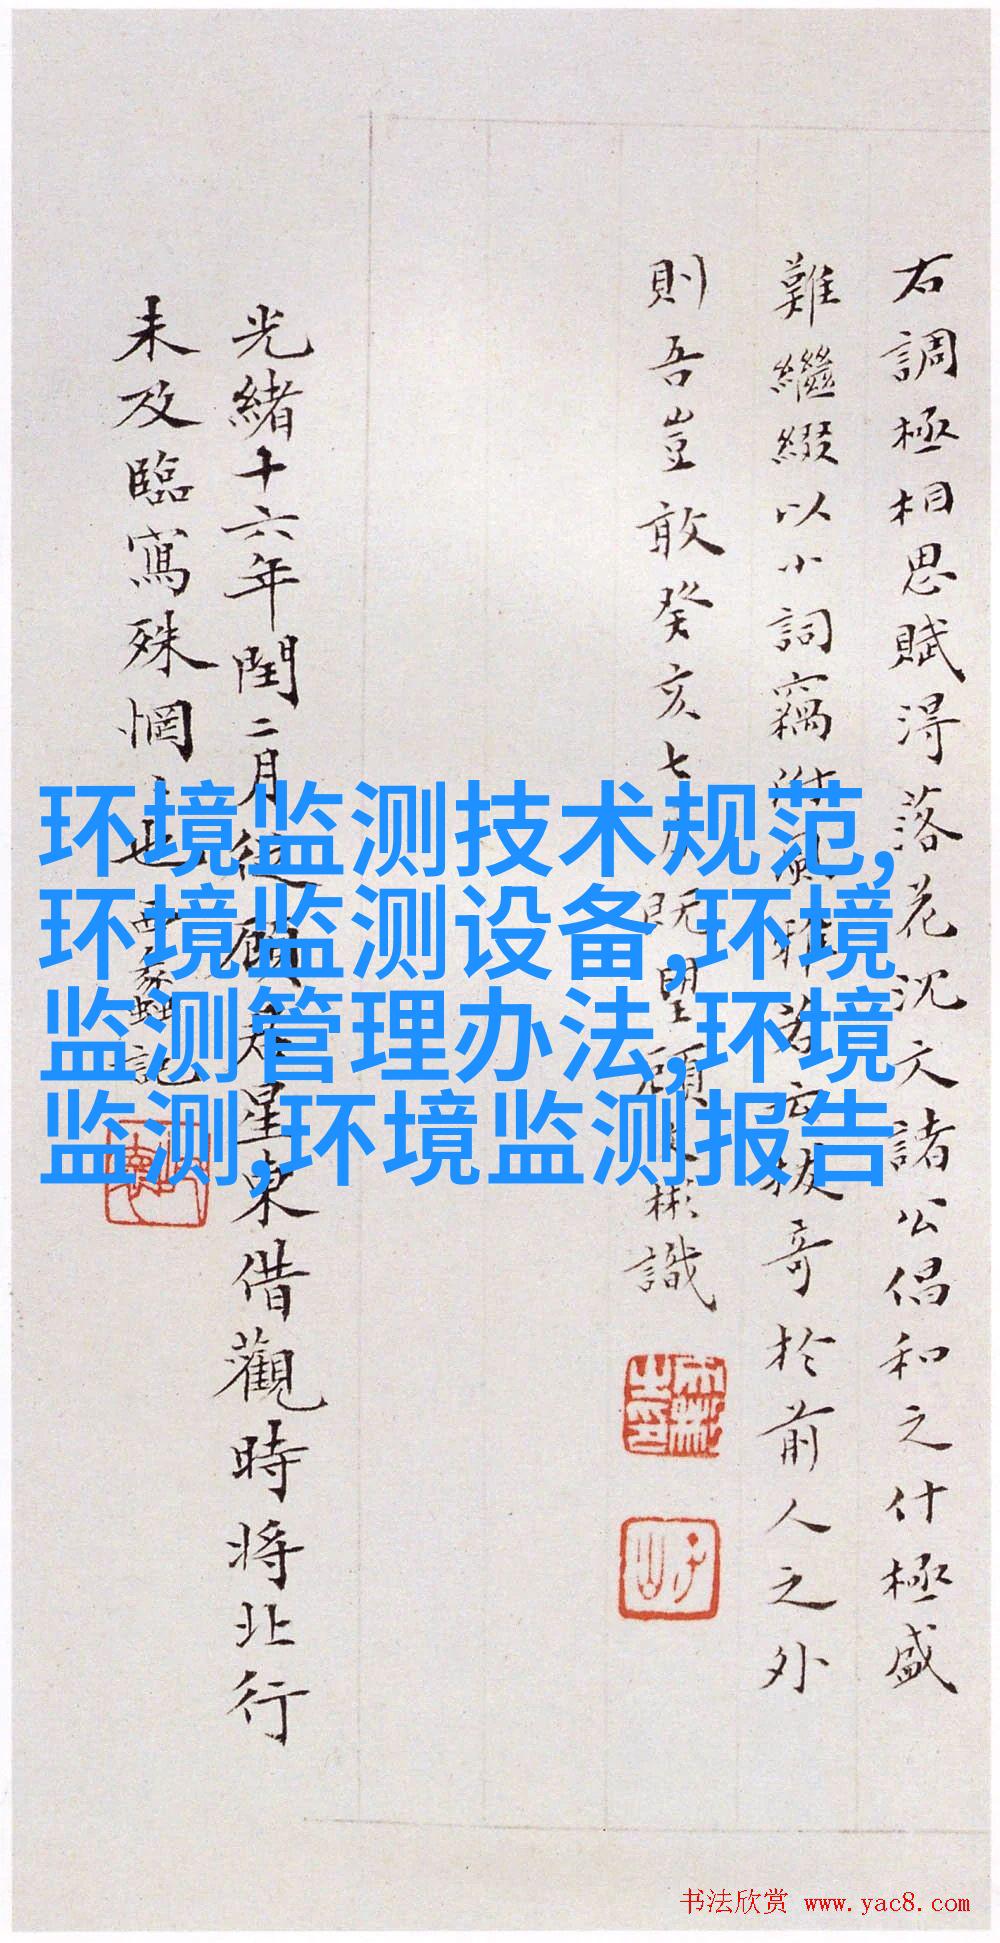 右調極相思賦得落花沈文諸公倡和之什極盛
難繼綴以小詞竊附風雅若云拔奇於前人之外
則吾豈敢癸亥七月既望顧文彬識
光緒十六年閏二月從顧君星東借觀時將北行
未及臨寫殊惘也
記
环境监测技术规范,
环境监测设备,环境
监测管理办法,环境
监测,环境监测报告
书法欣赏 www.yac8.com